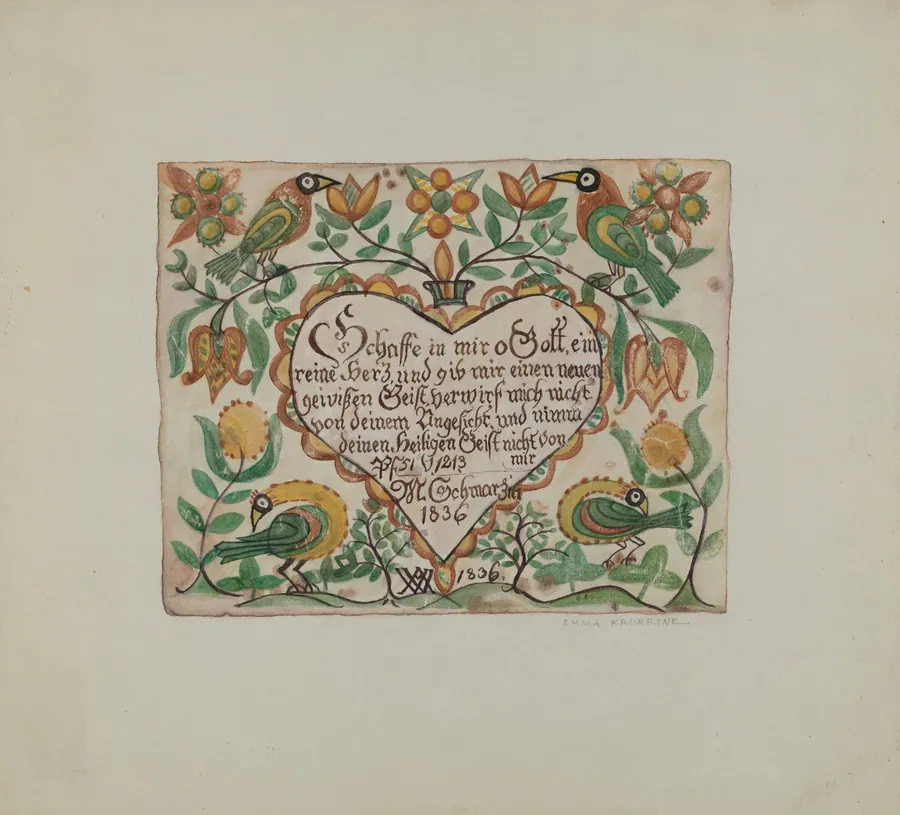 Es Schaffe in mir o Gott, ein
reine Herz, und giv mir einen neuen
geivißen Geist, verwirf mich nicht
von deinem Angesicht, und nimm
deinen Heiligen Geist nicht von
mir
Ps 51 V 1213
M. Schwarzin
1836
1836.
EMMA KRUMRINE